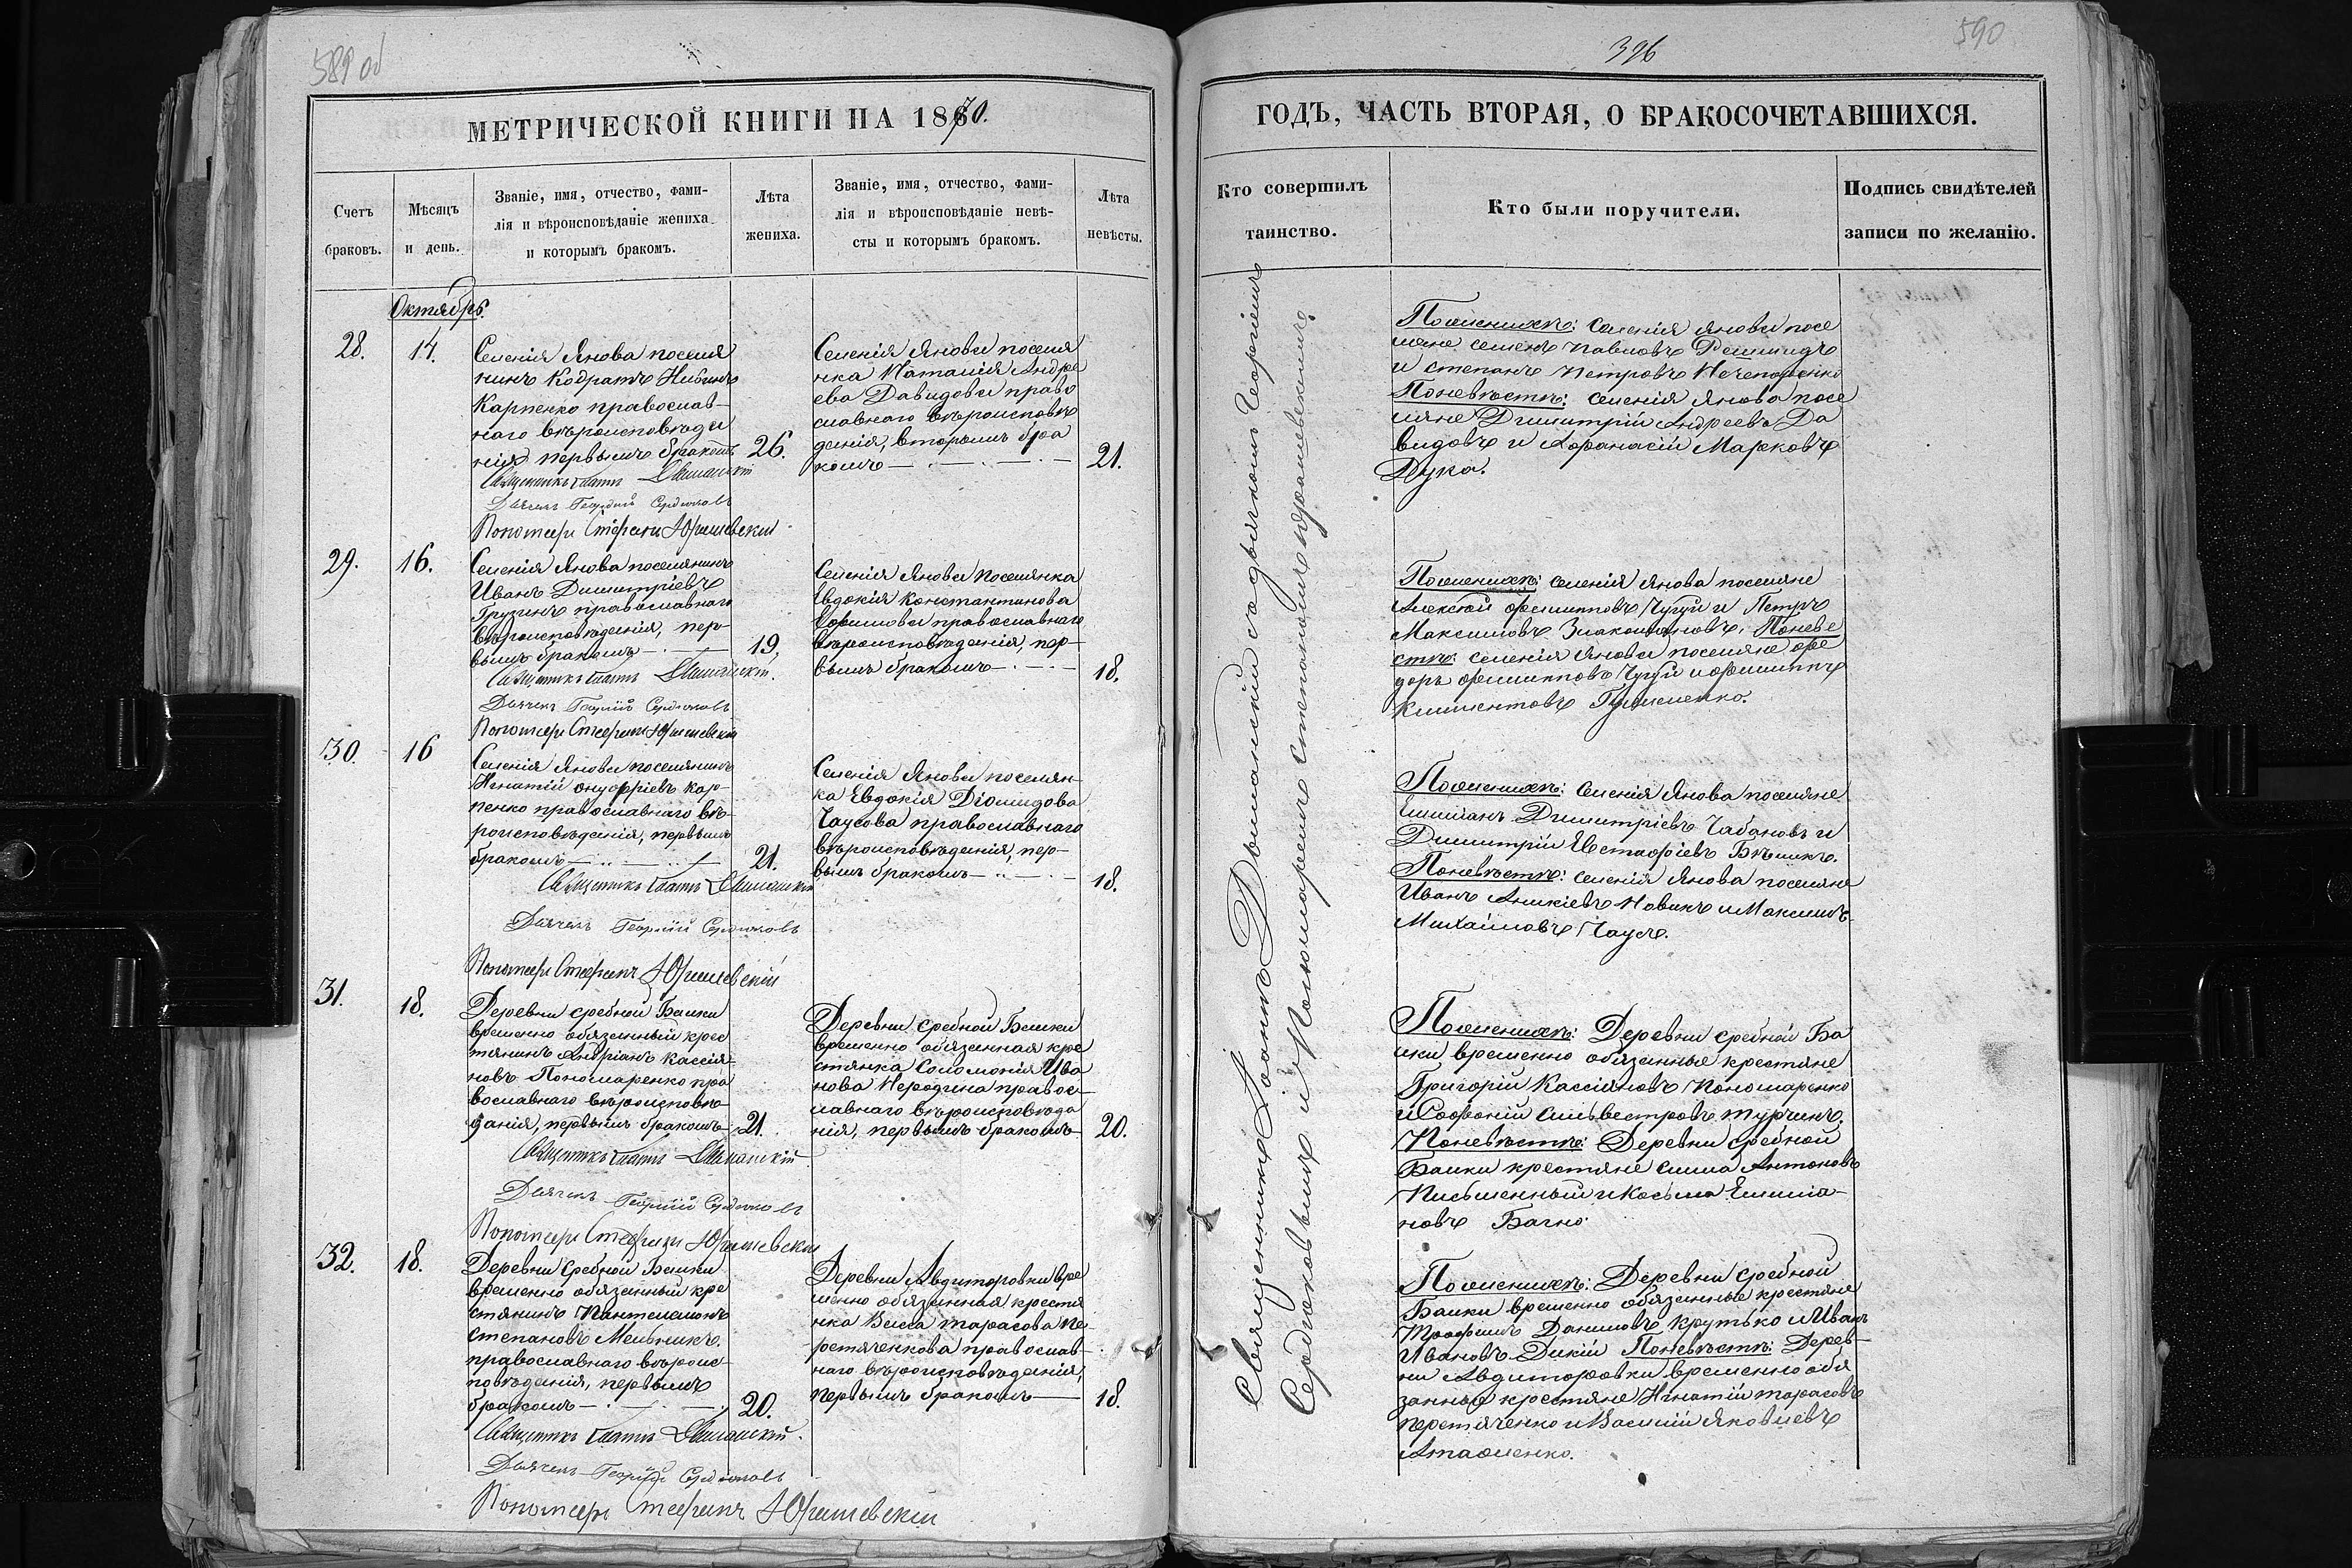 589 об
МЕТРИЧЕСКОЙ КНИГИ НА 1870.
Счетъ браковъ.
Мѣсяцъ и день.
Званіе, имя, отчество, фами-
лія и вѣроисповѣданіе жениха
и которымъ бракомъ.
Лѣта
жениха.
Званіе, имя, отчество, фами-
лія и вѣроисповѣданіе невѣ-
сты и которымъ бракомъ.
Лѣта
невѣсты.
Октябрь.
28.
14.
Селенія Янова поселя
нинъ Кодратъ
Карпенко православ-
наго вѣроисповѣда
нія первымъ бракомъ
26.
Священникъ Іоаннъ
Дьячекъ Георгій Сердюковъ
Пономарь Стефанъ Юрашевскій
Селенія Яновы поселя
нка Наталія Андре
ева Давидова право
славнаго вѣроисповѣ
денія, вторымъ бра
комъ
21.
29.
16.
Селенія Янова поселянинъ
Иванъ Димитріевъ
Грузинъ православнаго
вѣроисповѣденія, пер-
вымъ бракомъ
19.
Священникъ Іоаннъ
Дьячекъ Георгій Сердюковъ
Пономарь Стефанъ Юрашевскій
Селенія Яновы поселянка
Евдокія Константинова
православнаго
вѣроисповѣденія, пер-
вымъ бракомъ
18.
30.
16
Селенія Яновы поселянинъ
Игнатій Онуфріевъ Кар-
пенко православнаго вѣ-
роисповѣденія, первымъ
бракомъ
21.
Священникъ Іоаннъ
Дьячекъ Георгій Сердюковъ
Пономарь Стефанъ Юрашевскій
Селенія Яновы поселян-
ка Евдокія Діомидова
Чаусова православнаго
вѣроисповѣденія, пер-
вымъ бракомъ
18.
31.
18.
Деревни Сребной Балки
временно обязанный крес
тянинъ Андріанъ Кассія-
новъ Пономаренко пра
вославнаго вѣроисповѣ-
данія, первымъ бракомъ
21.
Священникъ Іоаннъ
Дьячекъ Георгій Сердюковъ
Пономарь Стефанъ Юрашевскій
Деревни Сребной Балки
временно обязанная кре
стянка Соломонія Ива
нова Неродина правос-
лавнаго вѣроисповѣда
нія, первымъ бракомъ
20.
32.
18.
Деревни Сребной Балки
временно обязанный кре
стянинъ Пантелеимонъ
Степановъ Мельникъ.
православнаго вѣроис-
повѣденія, первымъ
бракомъ
20.
Священникъ Іоаннъ
Дьячекъ Георгій Сердюковъ
Пономарь Стефанъ Юрашевскій
Деревни Авдиторовки вре
менно обязанная крестя
нка Васса Тарасова Пе-
ретяченкова православ-
наго вѣроисповѣденія,
первымъ бракомъ
18.
396
590
ГОДЪ, ЧАСТЬ ВТОРАЯ, О БРАКОСОЧЕТАВШИХСЯ.
Кто совершилъ
таинство.
Кто были поручители.
Подпись свидѣтелей
записи по желанію.
Священникъ Іоаннъ съ дьячкомъ Георгіемъ
Сердюковымъ и Пономаремъ Стефаномъ Юрашевскимъ
По женихѣ: Селенія Яновы посе
ляне Семенъ Павловъ
и Степанъ Петровъ Нечепоренко
По невѣстѣ: Селенія Янова посе
ляне Димитрій Андреевъ Да
видовъ и Афанасій Марковъ
Дука.
По женихѣ: Селенія Янова поселяне
Алексѣй Филипповъ Чугуй и Петръ
Максимовъ. По невѣ
стѣ: Селенія Яновы поселяне Фе
доръ Филипповъ Чугуй и Филиппъ
Климентовъ
По женихѣ: Селенія Янова поселяне
Емиліанъ Димитріевъ Чабановъ и
Димитрій Евстафіевъ Бѣликъ.
По невѣстѣ: Селенія Янова поселяне
Иванъ Новикъ и Максимъ
Михайловъ Чаусъ.
По женихѣ: Деревни Сребной Ба
лки временно обязанные крестяне
Григорій Кассіановъ Пономаренко
и Софоній Сильвестровъ Турчинъ.
По невѣстѣ: Деревни Сребной
Балки крестяне Сила Антоновъ
Письменный и Косьма Емилiа-
новъ Багно.
По женихѣ: Деревни Сребной
Балки временно обязанные крестяне
Трофимъ Даниловъ Крутько и Иванъ
Ивановъ Дикій По невѣстѣ: Дерев-
ни Авдиторовки временно обя
занные крестяне Игнатій Тарасовъ
Перетяченко и Василій Яковлевъ